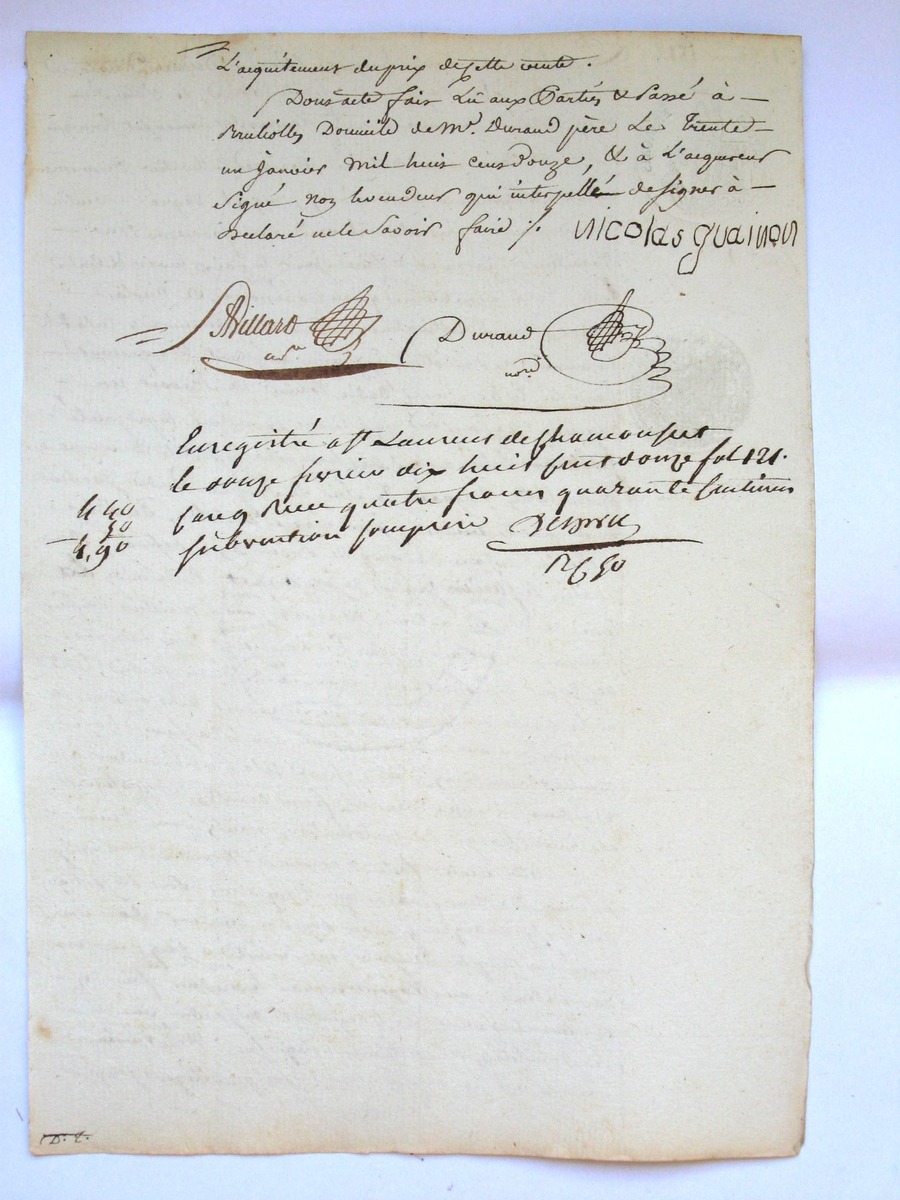 L'acquitement du prix de cette vente.
Dont acte fait Lû aux Parties & Passé à
Brulioles Domicile de Mr. Durand père Le Trente
un Janvier Mil huit cent Douze, & à L'acquereur
Signé non le vendeur qui interpellé de signer à
Declaré ne le Savoir faire /.
nicolas guainon
Villard
Durand
notre
Enregistré a St Laurent de Chamousset
le douze fevrier dix huit cent douze fol 121.
quatre francs quarante centimes
subvention comprise
4 40
50
4,90
2650
D. 2.